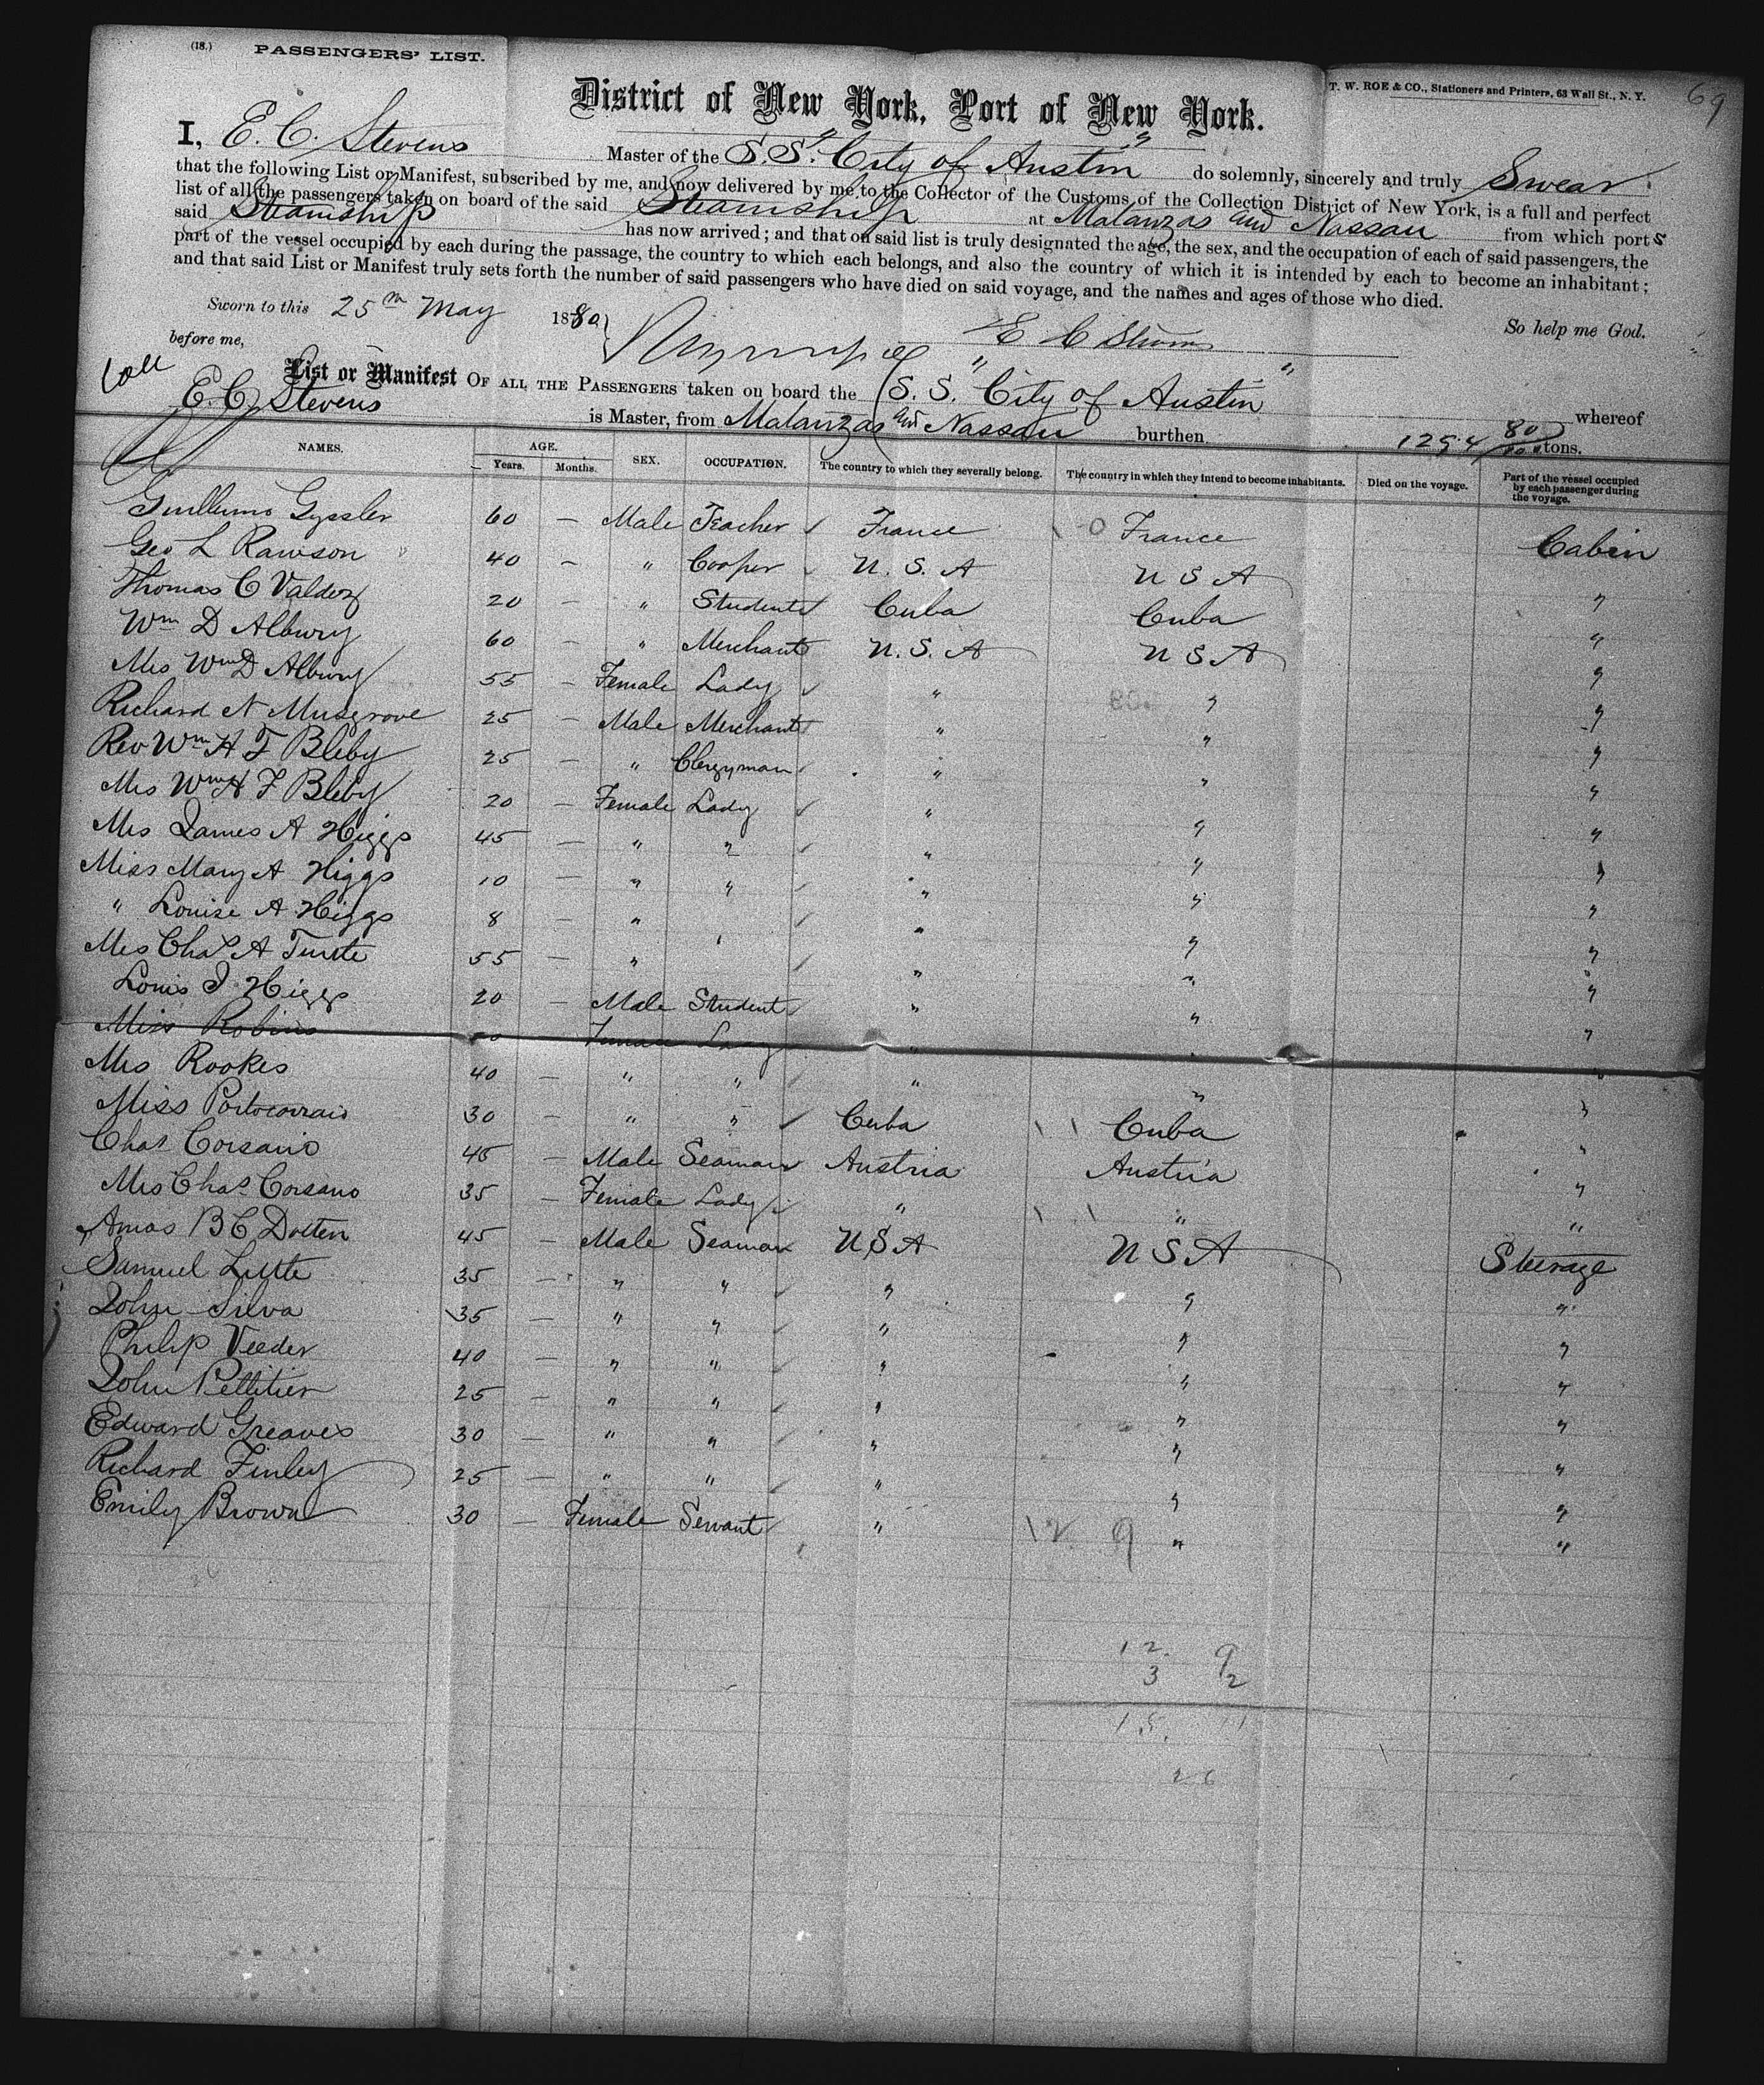 (18.) PASSENGERS' LIST.
T. W. ROE & CO., Stationers and Printers, 63 Wall St., N. Y.
69
District of New York, Port of New York.
I, E. C. Stevens Master of the S. S. "City of Austin" do solemnly, sincerely and truly Swear
that the following List or Manifest, subscribed by me, and now delivered by me to the Collector of the Customs of the Collection District of New York, is a full and perfect
list of all the passengers taken on board of the said Steamship at Matanzas and Nassau from which ports
said Steamship has now arrived; and that on said list is truly designated the age, the sex, and the occupation of each of said passengers, the
part of the vessel occupied by each during the passage, the country to which each belongs, and also the country of which it is intended by each to become an inhabitant;
and that said List or Manifest truly sets forth the number of said passengers who have died on said voyage, and the names and ages of those who died.
So help me God.
Sworn to this 25th May 1880
before me,
List or Manifest OF ALL THE PASSENGERS taken on board the S. S. "City of Austin" whereof
E. C. Stevens is Master, from Matanzas and Nassau burthen 1294 80/100 tons.
NAMES. AGE. Years. Months. SEX. OCCUPATION. The country to which they severally belong. The country in which they intend to become inhabitants. Died on the voyage. Part of the vessel occupied by each passenger during the voyage.
Guillermo Gyssler 60 — Male Teacher France O France Cabin
Geo L Rawson 40 — " Cooper U. S. A U S A "
Thomas C Valdez 20 — " Student Cuba Cuba "
Wm D Albury 60 — " Merchant U. S. A U S A "
Mrs Wm D Albury 55 — Female Lady " " "
Richard N Musgrove 25 — Male Merchant " " "
Rev Wm H F Bleby 25 — " Clergyman " " "
Mrs Wm H F Bleby 20 — Female Lady " " "
Mrs James A Higgs 45 — " " " " "
Miss Mary A Higgs 10 — " " " " "
" Louise A Higgs 8 — " " " " "
Mrs Chas A 55 — " " " "
Louis J Higgs 20 — Male Student " " "
Miss Robins Female Lady " " "
Mrs Rookes 40 — " " " " "
Miss 30 — " " Cuba Cuba "
Chas Corsano 45 — Male Seaman Austria Austria "
Mrs Chas Corsano 35 — Female Lady " " "
Amos B C 45 — Male Seaman U S A U S A Steerage
Samuel 35 — " " " " "
John Silva 35 — " " " " "
Philip Veeder 40 — " " " " "
John Pellitier 25 — " " " " "
Edward Greaves 30 — " " " " "
Richard Finley 25 — " " " " "
Emily Brown 30 — Female Servant " " "
12 9
12 9
3 2
15 11
26